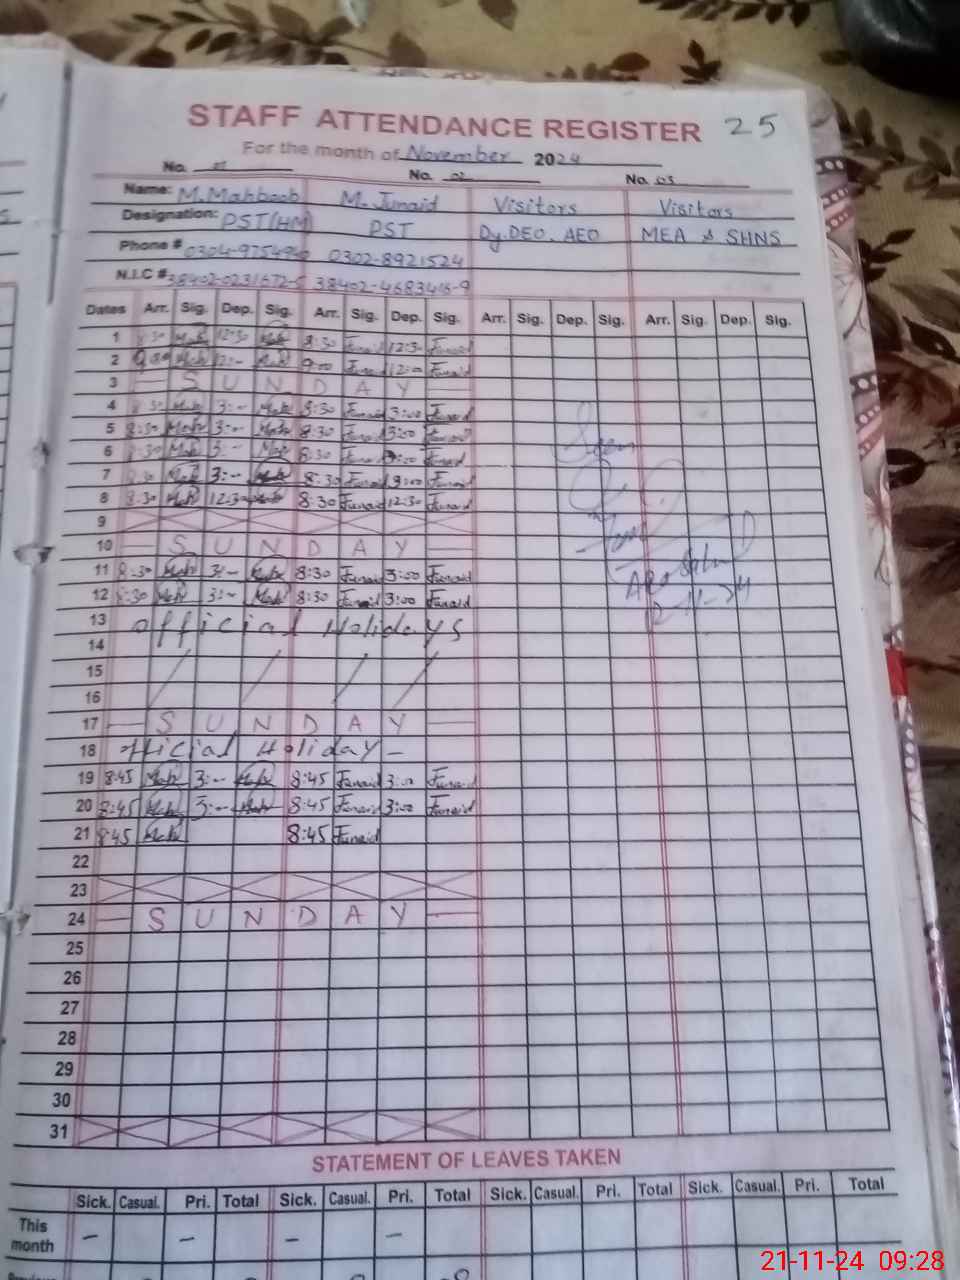 STAFF ATTENDANCE REGISTER 25
For the month of November 2024
No. 01 No. 02 No. 03
Name: M. Mahboob M. Junaid Visitors Visitors
Designation: PST(HM) PST Dy.DEO. AEO MEA & SHNS
Phone # 0302-8921524
N.I.C #
Dates Arr. Sig. Dep. Sig. Arr. Sig. Dep. Sig. Arr. Sig. Dep. Sig. Arr. Sig. Dep. Sig.
1 8:30 Mah 12:30 Mah 8:30 Junaid 12:30 Junaid
2 Mah 12:- Mah 9:00 Junaid 12:00 Junaid
3 — S U N D A Y —
4 8:30 Mah 3:- Mah 8:30 Junaid 3:00 Junaid
5 8:30 Mah 3:- Mah 8:30 Junaid 3:00 Junaid
6 8:30 Mah 3:- Mah 8:30 Junaid 3:00 Junaid
7 8:30 Mah 3:- Mah 8:30 Junaid 3:00 Junaid
8 8:30 Mah 12:30 Mah 8:30 Junaid 12:30 Junaid
9
10 — S U N D A Y —
11 8:30 Mah 3:- Mah 8:30 Junaid 3:00 Junaid
12 8:30 Mah 3:- Mah 8:30 Junaid 3:00 Junaid
13 official Holidays
14
15
16
17 — S U N D A Y —
18 official Holiday -
19 8:45 Mah 3:- Mah 8:45 Junaid 3:00 Junaid
20 8:45 Mah 3:- Mah 8:45 Junaid 3:00 Junaid
21 8:45 Mah 8:45 Junaid
22
23
24 — S U N D A Y —
25
26
27
28
29
30
31
Seen
AEO
12-11-24
STATEMENT OF LEAVES TAKEN
Sick. Casual. Pri. Total Sick. Casual. Pri. Total Sick. Casual. Pri. Total Sick. Casual. Pri. Total
This month - - - -
21-11-24 09:28